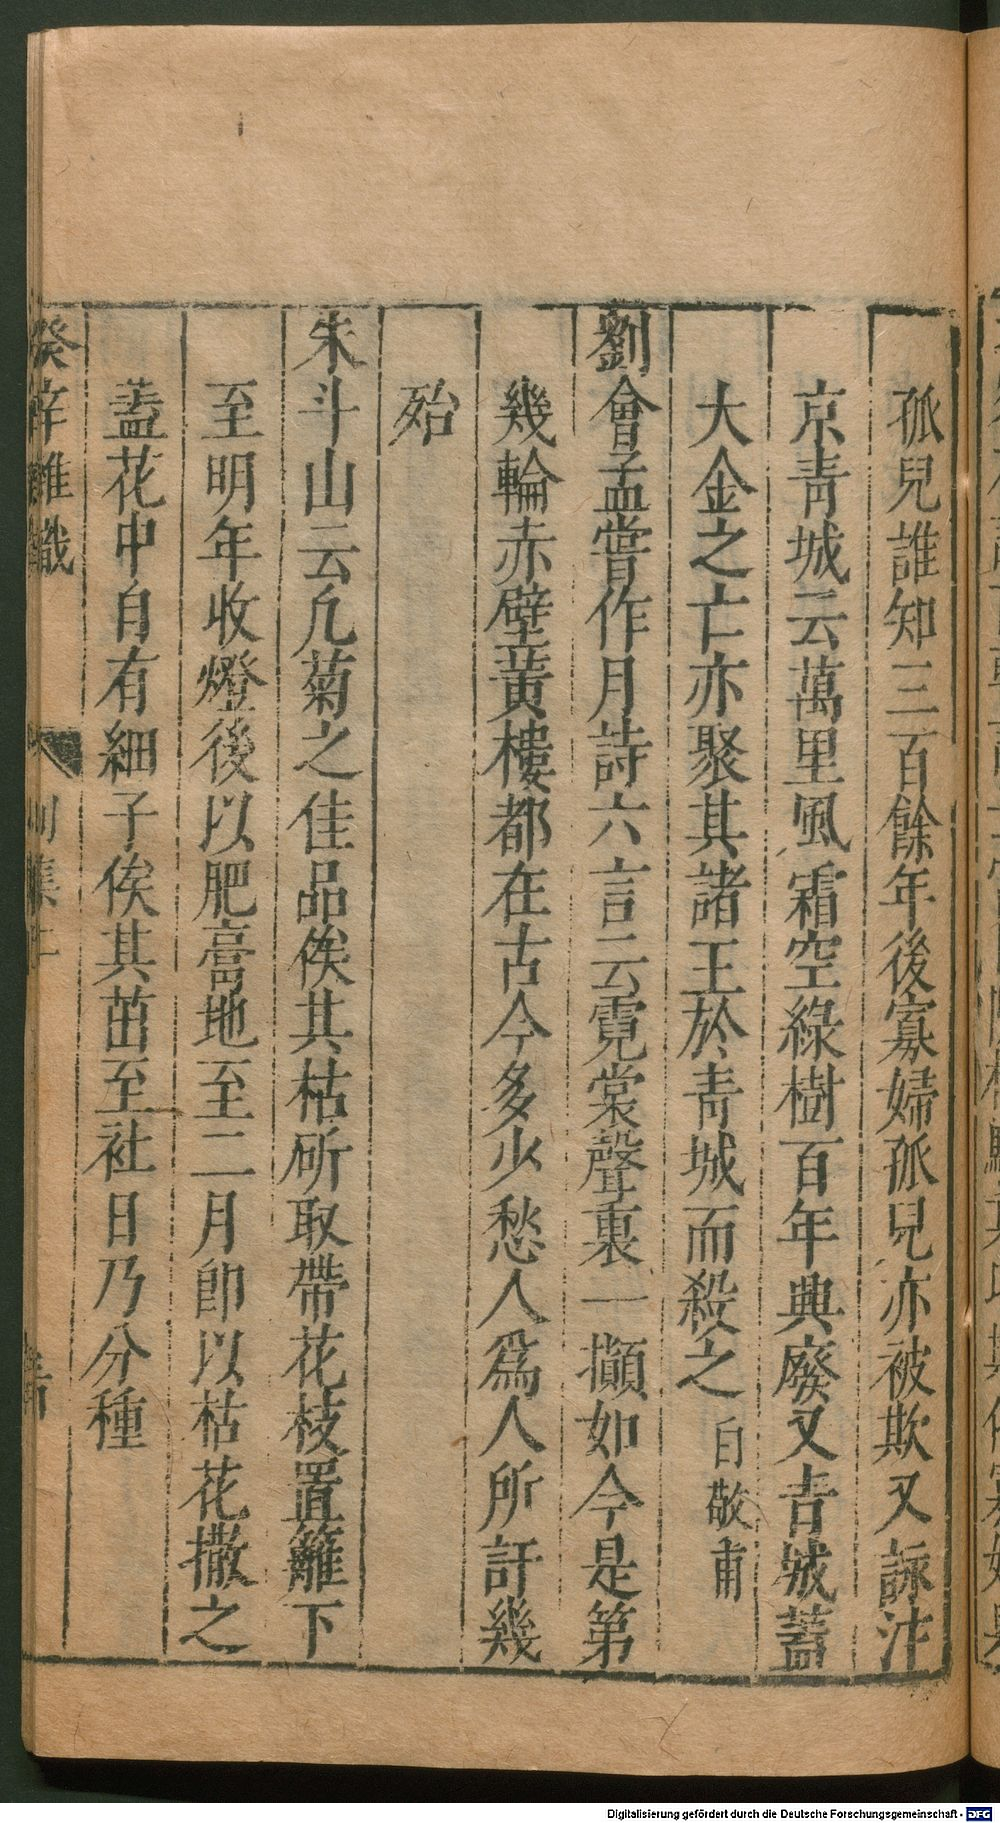 孤兒誰知三百餘年後寡婦孤兒亦被欺又詠汴
京青城云萬里風霜空綠樹百年興廢又吉城蓋
大金之亡亦聚其諸王於青城而殺之白敬甫
劉會孟嘗作月詩六言云霓裳聲裏一攧如今是第
幾輪赤壁黃樓都在古今多少愁人爲人所訐幾
殆
朱斗山云凢菊之佳品俟其枯斫取帶花枝置籬下
至明年收燈後以肥膏地至二月卽以枯花撒之
盖花中自有細子俟其茁至社日乃分種
癸辛雜識
別集上
Digitalisierung gefördert durch die Deutsche Forschungsgemeinschaft - DFG